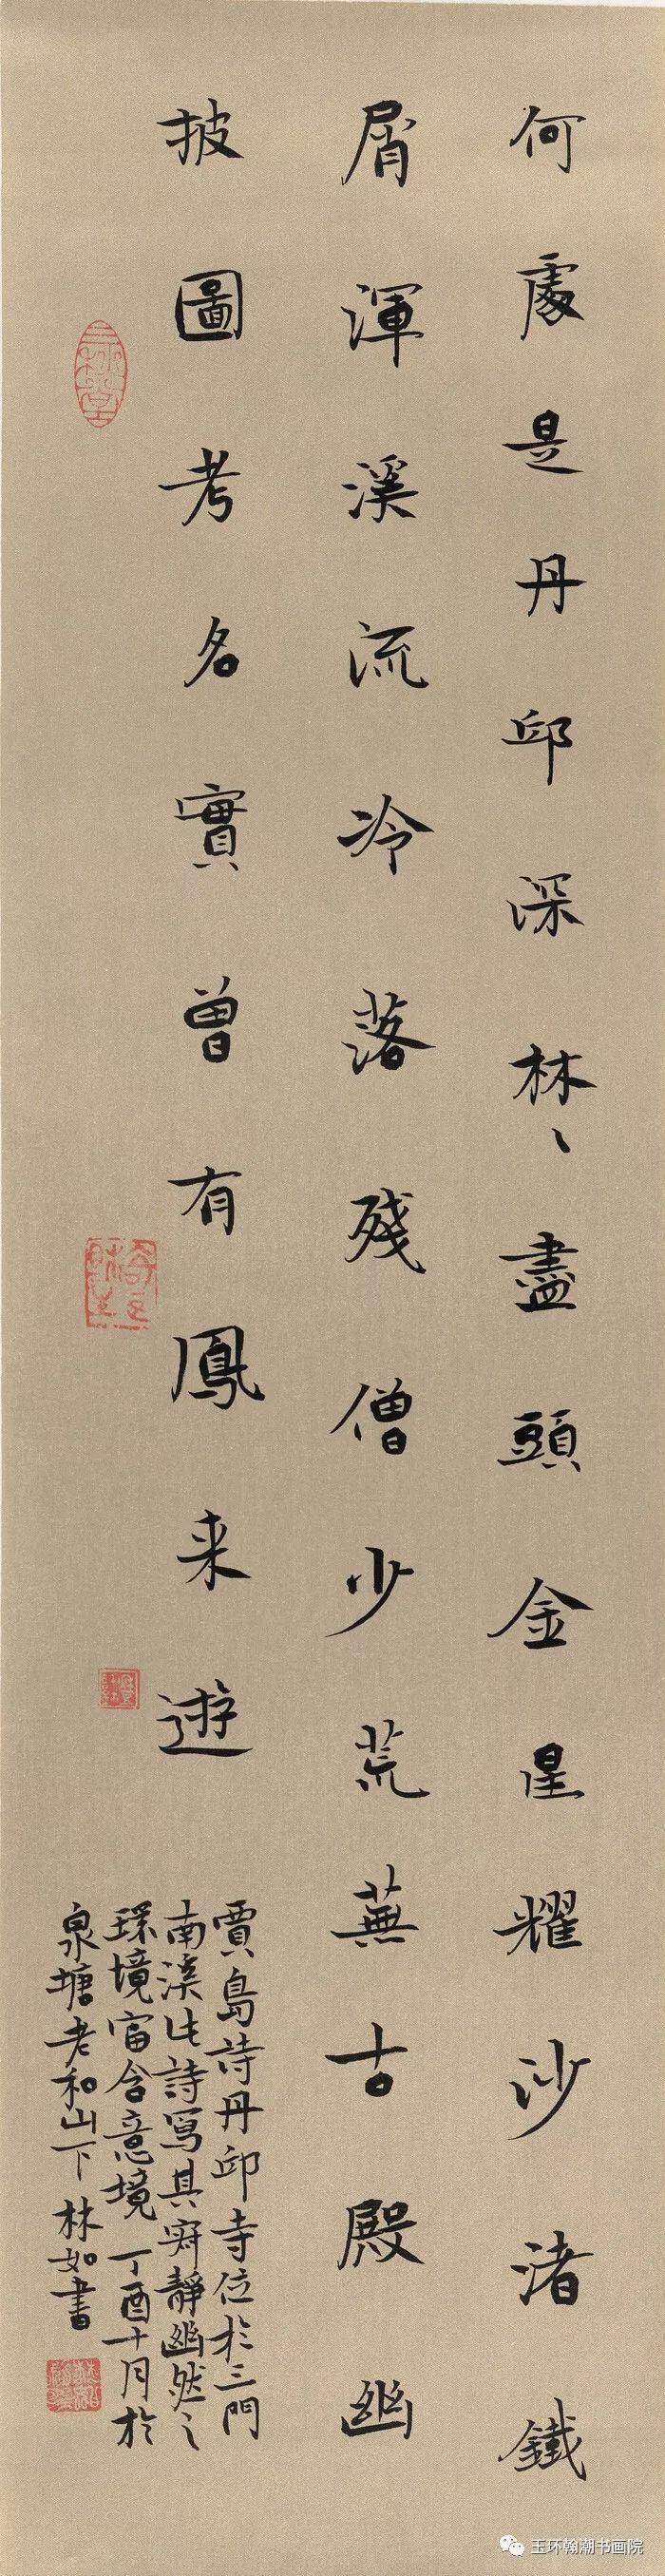 何處是丹邱深林〻盡頭金星耀沙渚鐵
屑渾溪流冷落殘僧少荒蕪古殿幽
披圖考名實曾有鳳來遊
賈島詩丹邱寺位於三門
南溪此詩寫其寂靜幽然之
環境富含意境 丁酉十月於
泉塘老和山下 林如書
玉环翰潮书画院